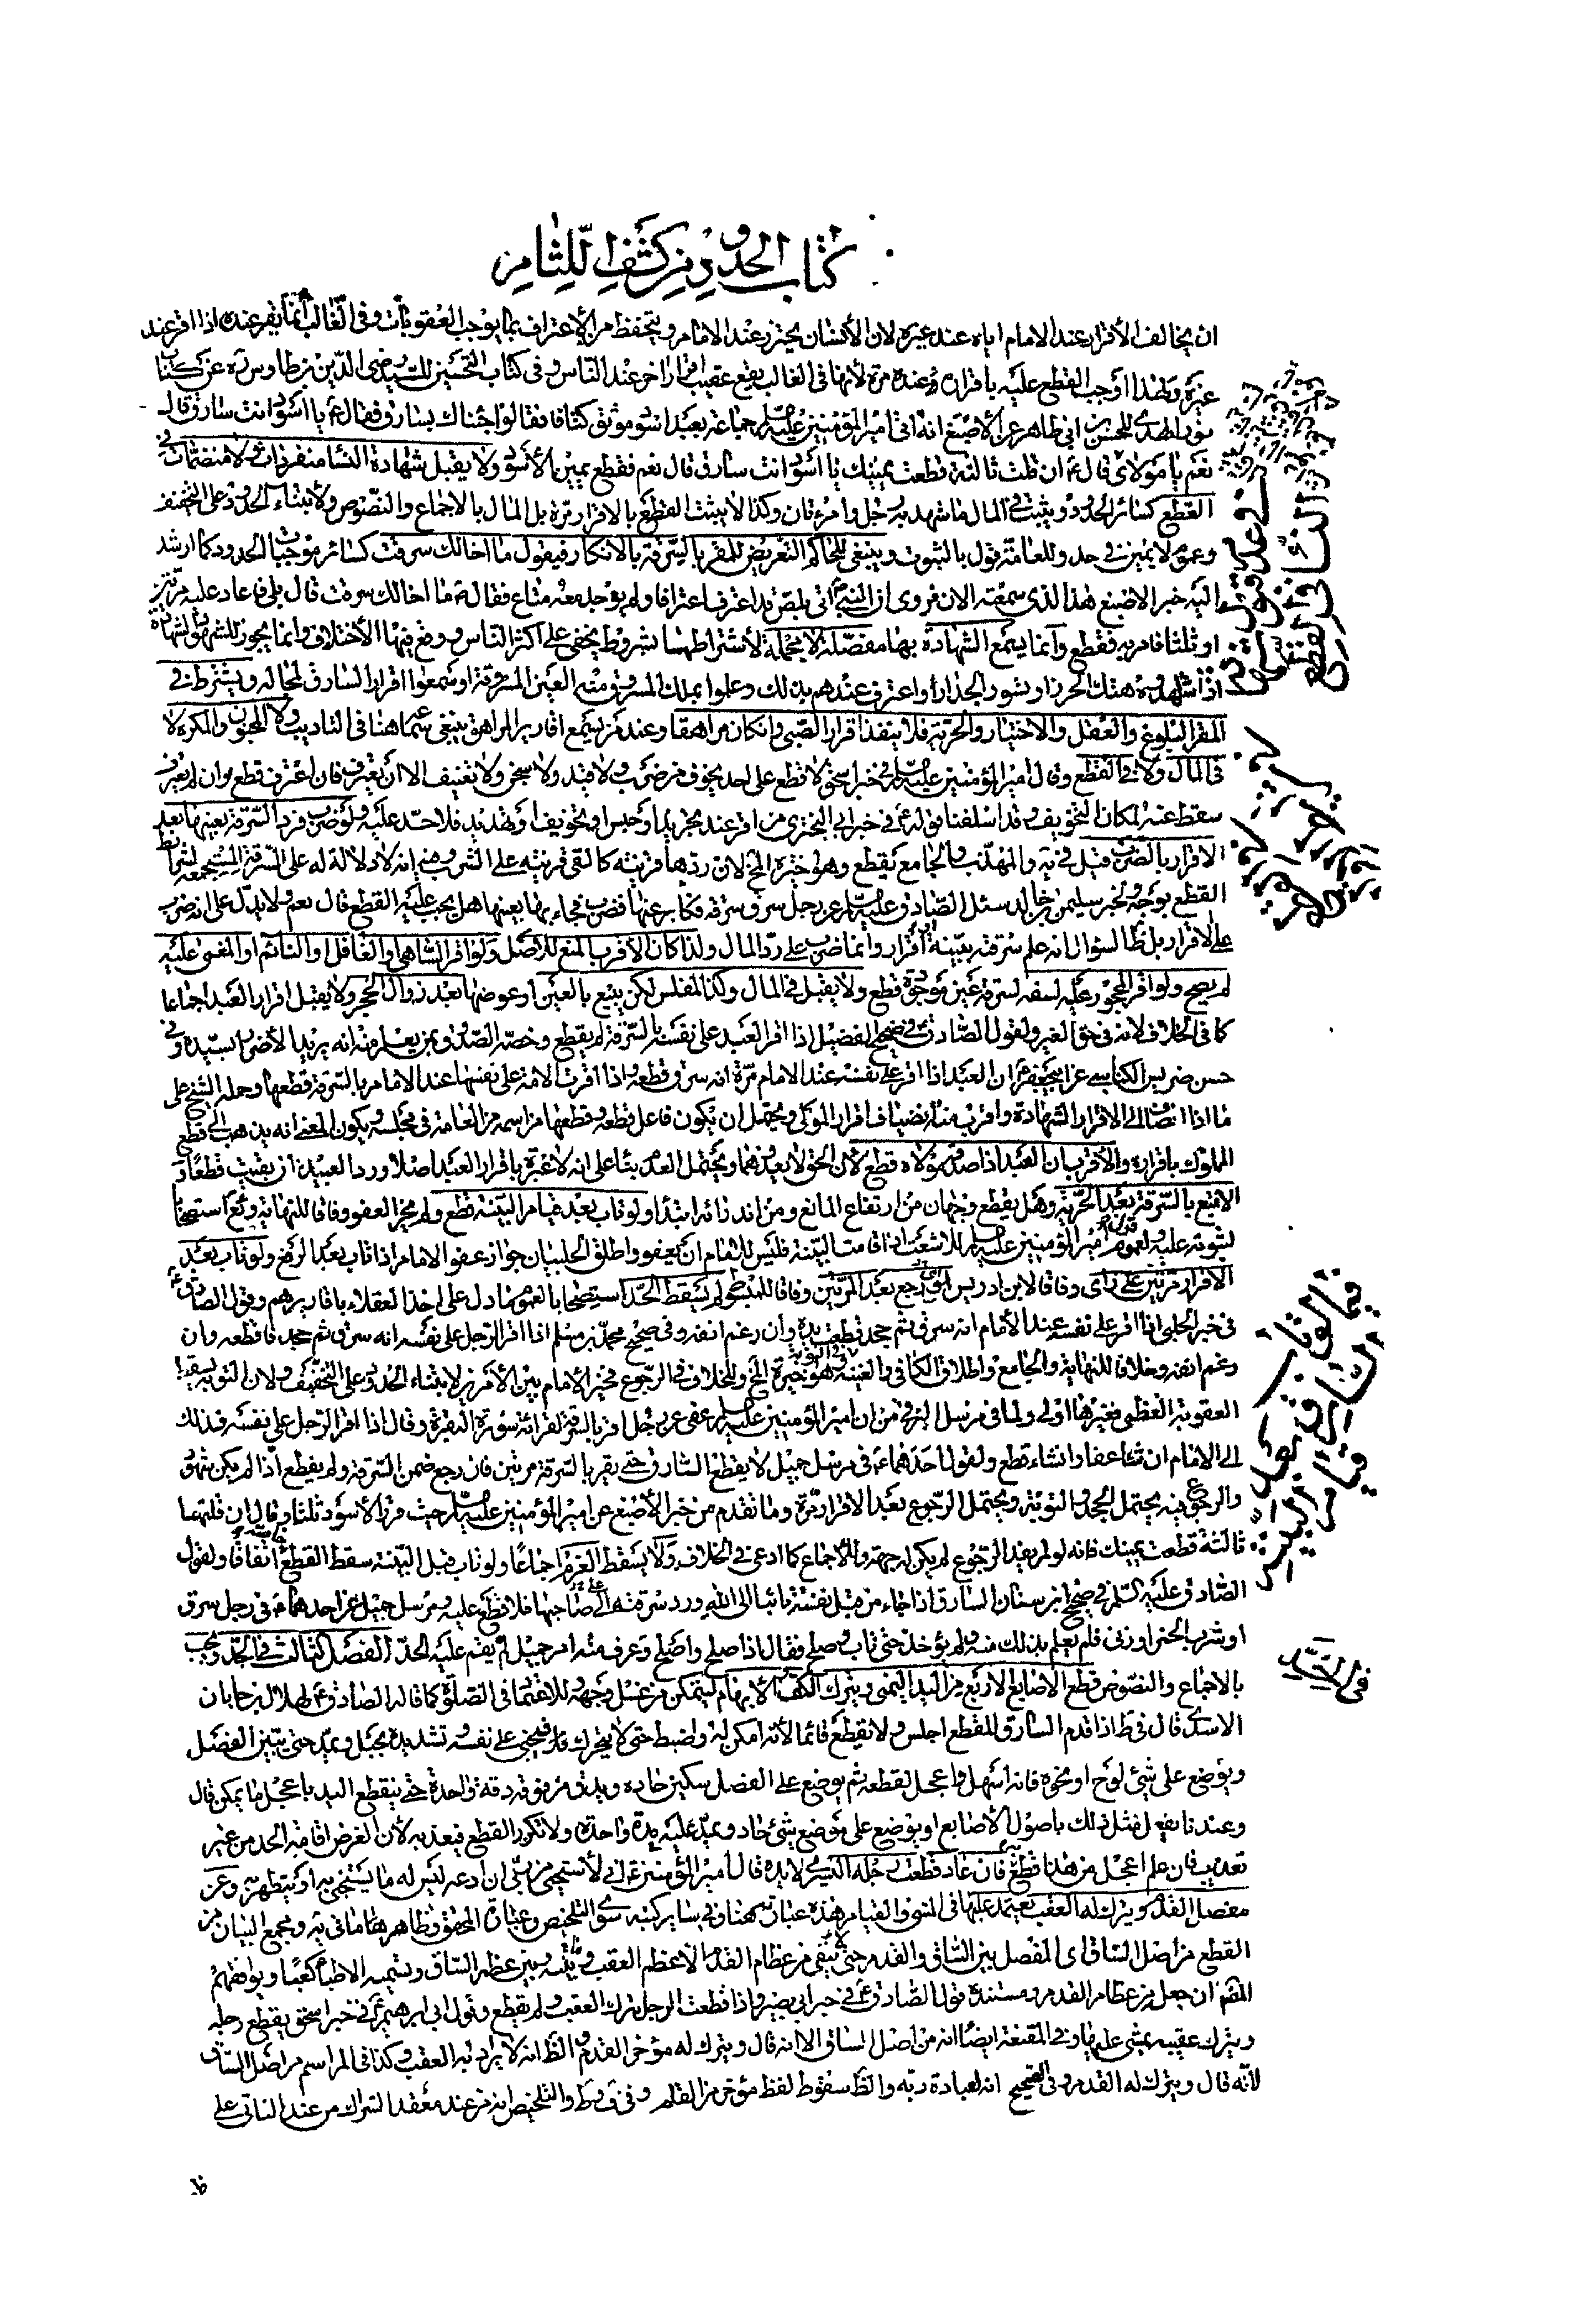 كتاب الحدود من كشف اللثام
ان يخالف الأقرار عند الامام اياه عند غيره لان الأنسان يحترز عند الامام ويتحفظ من الإعتراف بما يوجب العقوبات وفى الغالب انما يقر عنده اذا اقر عند
غيره ولهذا اوجب القطع عليه باقراره عنده مرة لأنها فى الغالب يقع عقيب اقرار اخر عند الناس وفى كتاب التحصين للسيد رضى الدين بن طاوس ره عن كتاب
نور الهدى للحسن بن ابى طاهر عن الأصبغ انه اتى امير المؤمنين عليه السلم جماعة بعبد اسود موثق كتافا فقالوا جئناك بسارق فقال ع يا اسود انت سارق قال
نعم يا مولاى قال ع ان قلت ثالثة قطعت يمينك يا اسود انت سارق قال نعم فقطع يمين الأسود ولا يقبل شهادة النسا منفردات ولا منضمات فى
القطع كسائر الحدود ويثبت فى المال ما شهد به رجل وامرءتان وكذا لا يثبت القطع بالاقرار مرة بل المال بالاجماع والنصوص ولابتناء الحدود على التخفيف
وعموم لا يمين فى حد وللعامة قول بالثبوت وينبغى للحاكم التعريض للمقر بالسرقة بالانكار فيقول ما اخالك سرقت كسائر موجبات الحدود كما ارشد
اليه خبر الاصبغ هذا الذى سمعته الان فروى ان النبى ص اتى بلص قد اعترف اعترافا ولم يوجد معه متاع فقال ص ما اخالك سرقت قال بلى فاعاد عليه مرتين
او ثلثا فامر به فقطع وانما يسمع الشهادة بها مفصلة لا مجملة لأشتراطها بشروط يخفى على اكثر الناس ووقع فيها الأختلاف وانما يجوز للشهود الشهادة
اذا شهدوه هتك الحرز او تسور الجدار أو اعترف عندهم بذلك وعلموا بملك المسروق منه العين المسروقة او سمعوا اقرار السارق لمحاله ويشترط فى
المقر البلوغ والعقل والاختيار والحرية فلا ينفذ اقرار الصبى وان كان مراهقا وعند من يسمع اقارير المراهق ينبغى سماعها هنا فى التاديب ولا المجنون والمكره لا
فى المال ولا فى القطع وقال امير المؤمنين عليه السلم فى خبر اسحق لا قطع على احد يخوف من ضرب ولا قيد ولا سجن ولا تعنيف الا ان يعترف فان اعترف قطع وان لم يعترف
سقط عنه لمكان التخويف وقد اسلفنا قوله ع فى خبر ابى البخترى من اقر عند تجريد او حبس او تخويف او تهديد فلا حد عليه ولو ضرب فرد السرقة بعينها بعد
الاقرار بالضرب قيل فى يه والمهذب والجامع يقطع وهو خيرة المخ لان ردها قرينة كالقى قرينته على الشرب وفيه انه لا دلالة له على السرقة المستجمعة لشرائط
القطع بوجه ولخبر سليمن بن خالد سئل الصادق عليه السلم عن رجل سرق سرقة فكابر عنها فضرب فجاء بها بعينها هل يجب عليه القطع قال نعم ولا يدل على انه ضرب
على الاقرار بل ظ السؤال انه علم سرقته ببينة او اقرار وانما ضرب على رد المال ولذا كان الأقرب المنع للاصل ولو اقر الساهى والغافل والنائم او المغمى عليه
لم يصح ولو اقر المحجور عليه لسفه لسرقة عين موجودة قطع ولا يقبل فى المال وكذا المفلس لكن يتبع بالعين او عوضها بعد زوال الحجر ولا يقبل اقرار العبد اجماعا
كما فى الخلاف لانه فى حق الغير ولقول الصادق ع فى صحيح الفضيل اذا اقر العبد على نفسه بالسرقة لم يقطع وخصه الصدوق بمن يعلم منه انه يريد الأضرار بسيده وفى
حسن ضريس الكناسى عن ابيجعفر ع ان العبد اذا اقر على نفسه عند الامام مرة انه سرق قطعه واذا اقرت الامة على نفسها عند الامام بالسرقة قطعها وحمله الشيخ على
ما اذا انضاف الى الاقرار الشهادة واقرب منه انضياف اقرار المولى ويحتمل ان يكون فاعل قطعه وقطعها من اسمه من العامة فى مجلسه ويكون المعنى انه يذهب الى قطع
المملوك باقراره والأقرب ان العبد اذا صدقه مولاه قطع لأن الحق لا يعدوهما ويحتمل العدم بناء على انه لا عبرة باقرار العبد اصلا ورد العبيد ان بقيت قطعا و
الاتبع بالسرقة بعد الحرية وهل يقطع وجهان من ارتفاع المانع ومن اندرائه ابتداء ولو تاب بعد قيام البينة قطع ولم يجز العفو وفاقا للنهاية ويع استصحابا
لثبوته عليه ولعموم قول امير المؤمنين عليه السلم للاشعث اذا قامت البينة فليس للامام ان يعفو واطلق الحلبيان جواز عفو الامام اذا تاب بعد الرفع ولو تاب بعد
الاقرار مرتين على راى وفاقا لابن ادريس او رجع بعد المرتين وفاقا للمبسوط لم يسقط الحد استصحابا لعموم ما دل على اخذ العقلاء باقاريرهم وقول الصادق ع
فى خبر الحلبى اذا اقر على نفسه عند الأمام انه سرق ثم جحد قطعت يده وان رغم انفه وفى صحيح محمد بن مسلم اذا اقر الرجل على نفسه انه سرق ثم جحد فاقطعه وان
رغم انفه وخلافا للنهاية والجامع واطلاق الكافى والغنية فى التوبة وهو خيرة المخ وللخلاف فى الرجوع فخير الامام بين الأمرين لابتناء الحدود على التخفيف ولان التوبة يسقط
العقوبة العظمى فغيرها اولى ولما فى مرسل البرقى من ان امير المؤمنين عليه السلم عفى عن رجل اقر بالسرقة لقرائة سورة البقرة وقال اذا اقر الرجل على نفسه فذلك
الى الامام ان شاء عفا وان شاء قطع ولقول احدهما ع فى مرسل جميل لا يقطع السارق حتى يقر بالسرقة مرتين فان رجع ضمن السرقة ولم يقطع اذا لم يكن شهود
والرجوع فيه يحتمل الجحود والتوبة ويحتمل الرجوع بعد الاقرار مرة وما تقدم من خبر الأصبغ عن امير المؤمنين عليه السلم حيث قرر الأسود ثلثا وقال ان قلتها
ثالثة قطعت يمينك فانه لو لم يفد الرجوع لم يكن له جهة وللاجماع كما ادعى فى الخلاف ولا يسقط الغرم اجماعا ولو تاب قبل البينة سقط القطع عنه اتفاقا ولقول
الصادق عليه السلم فى صحيح ابن سنان السارق اذا جاء من قبل نفسه تائبا الى الله ورد سرقته الى صاحبها فلا قطع عليه ومرسل جميل عن احدهما ع فى رجل سرق
او شرب الخمر او زنى فلم يعلم بذلك منه ولم يؤخذ حتى تاب وصلح فقال اذا صلح واصلح وعرف منه امر جميل لم يقم عليه الحد الفصل الثالث فى الحد ويجب
بالاجماع والنصوص قطع الاصابع الاربع من اليد اليمنى ويترك الكف والابهام ليتمكن من غسل وجهه وللاعتماد فى الصلوة كما قاله الصادق ع لهلال بن جابان
الاسدى قال فى ط اذا قدم السارق للقطع اجلس ولا يقطع قائما لأنه امكن له واضبط حتى لا يتحرك فيجنى على نفسه وتشد يده بحبل ويمد حتى يتبين المفصل
ويوضع على شئ لوح او نحوه فانه اسهل واعجل لقطعه ثم يوضع على المفصل سكين حادة ويدق من فوقه دقة واحدة حتى ينقطع اليد باعجل ما يمكن قال
وعندنا يفعل مثل ذلك باصول الأصابع او يوضع على موضع شئ حاد ويمد عليه مدة واحدة ولا يكرر القطع فيعذبه لأن الغرض اقامة الحد من غير
تعذيب فان علم اعجل من هذا قطع به فان عاد قطعت رجله اليسرى لا يده قال امير المؤمنين ع انى لأستحيى من ربى ان ادعه ليس له ما يستنجى به او يتطهر به وعن
مفصل القدم ويترك له العقب يعتمد عليها فى المشى والقيام هذه عبارته هنا وفى ساير كتبه سوى التلخيص وعبارة المحقق وظاهرهما ما فى يه ومجمع البيان من
القطع من اصل الساق اى المفصل بين الساق والقدم حتى لا يبقى من عظام القدم الا عظم العقب وما بينه وبين عظم الساق ويسميه الاطباء كعبا ويوافقهم
المقنع ان جعل من عظام القدم ومستنده قول الصادق ع فى خبر ابى بصير واذا قطعت الرجل ترك العقب ولم يقطع وقول ابى ابرهيم ع فى خبر اسحق يقطع رجله
ويترك عقبيه يمشى عليها وفى المقنعة ايضا انه من اصل الساق الا انه قال ويترك له مؤخر القدم والظ انه لا يريد به العقب وكذا فى المراسم من اصل الساق
لأنه قال ويترك له القدم وفى الصحيح انه لعبادة ربه والظ سقوط لفظ مؤخر من القلم وفى ف وط والتلخيص انه من عند معقد الشراك من عند الناتى على
فى الحد
ظ